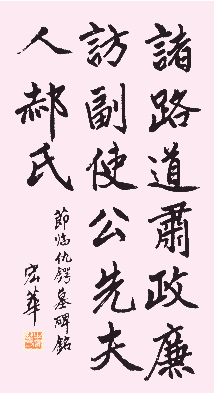 諸路道肅政廉
訪副使公先夫
人郝氏
節临仇锷墓碑銘
宏華